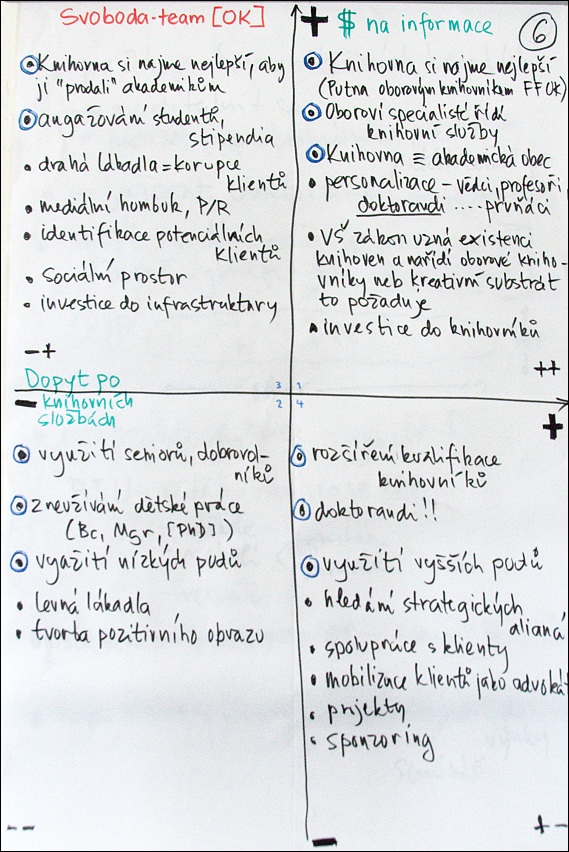 Svoboda-team [OK]
+ $ na informace
6
Knihovna si najme nejlepší, aby
ji "prodali" akademikům
angažování studentů,
stipendia
• drahá lákadla = korupce
klientů
• mediální humbuk, P/R
• identifikace potenciálních
klientů
• sociální prostor
• investice do infrastruktury
-+
Knihovna si najme nejlepší
(Putna oborovým knihovníkem FF UK)
Oboroví specialisté řídí
knihovní služby
Knihovna ≡ akademická obec
• personalizace – vědci, profesoři,
doktorandi .... prvňáci
• VŠ zákon uzná existenci
knihoven a nařídí oborové kniho-
vníky neb kreativní substrát
to požaduje
• investice do knihovníků
++
Dopyt po
- knihovních
službách
3 1
2 4
+
využití seniorů, dobrovol-
níků
zneužívání dětské práce
(Bc, Mgr, [PhD])
využití nízkých pudů
• levná lákadla
• tvorba pozitivního obrazu
--
rozšíření kvalifikace
knihovníků
doktorandi!!
využití vyšších pudů
• hledání strategických
alianá
• spolupráce s klienty
• mobilizace klientů jako advokát
• projekty
• sponzoring
-
+-